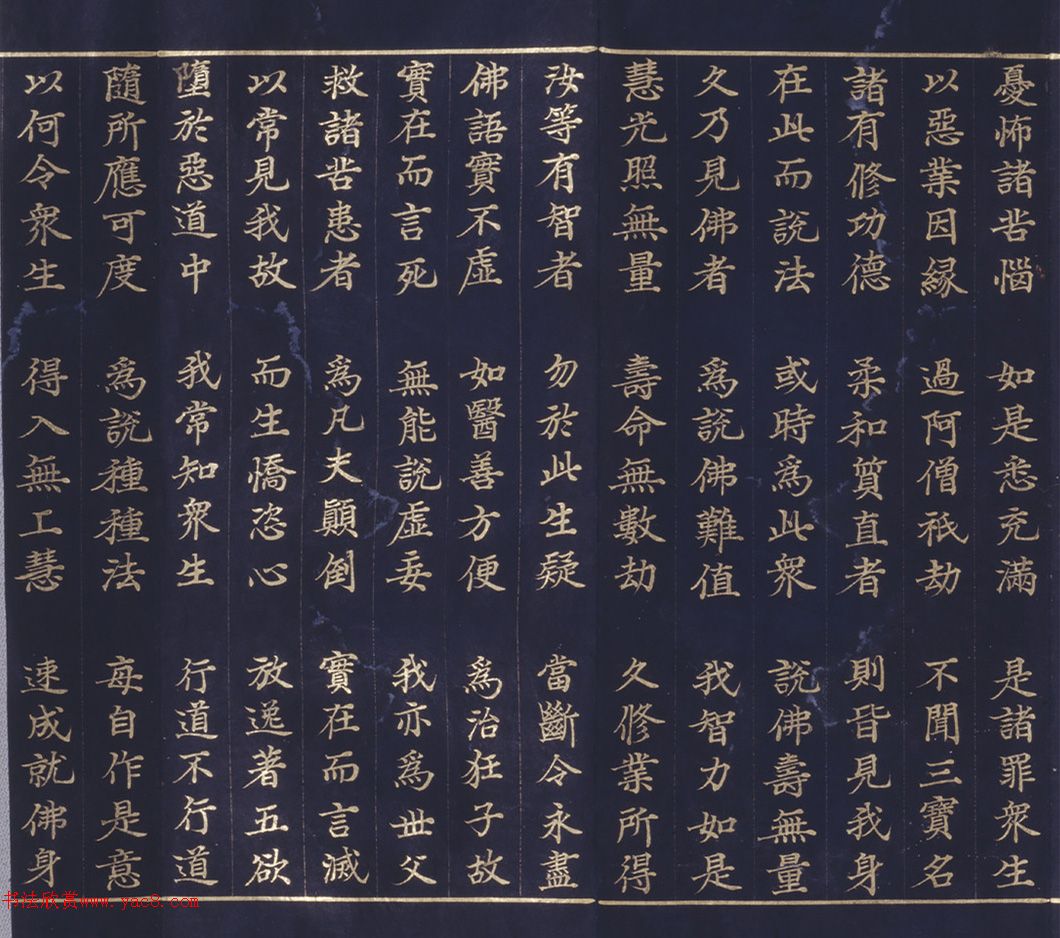 憂怖諸苦惱 如是悉充滿 是諸罪衆生
以惡業因緣 過阿僧祇劫 不聞三寶名
諸有修功德 柔和質直者 則皆見我身
在此而說法 或時爲此衆 說佛壽無量
久乃見佛者 爲說佛難值 我智力如是
慧光照無量 壽命無數劫 久修業所得
汝等有智者 勿於此生疑 當斷令永盡
佛語實不虛 如醫善方便 爲治狂子故
實在而言死 無能說虛妄 我亦爲世父
救諸苦患者 爲凡夫顛倒 實在而言滅
以常見我故 而生憍恣心 放逸著五欲
墮於惡道中 我常知衆生 行道不行道
隨所應可度 爲說種種法 每自作是意
以何令衆生 得入無上慧 速成就佛身
书法欣赏www.yac8.com